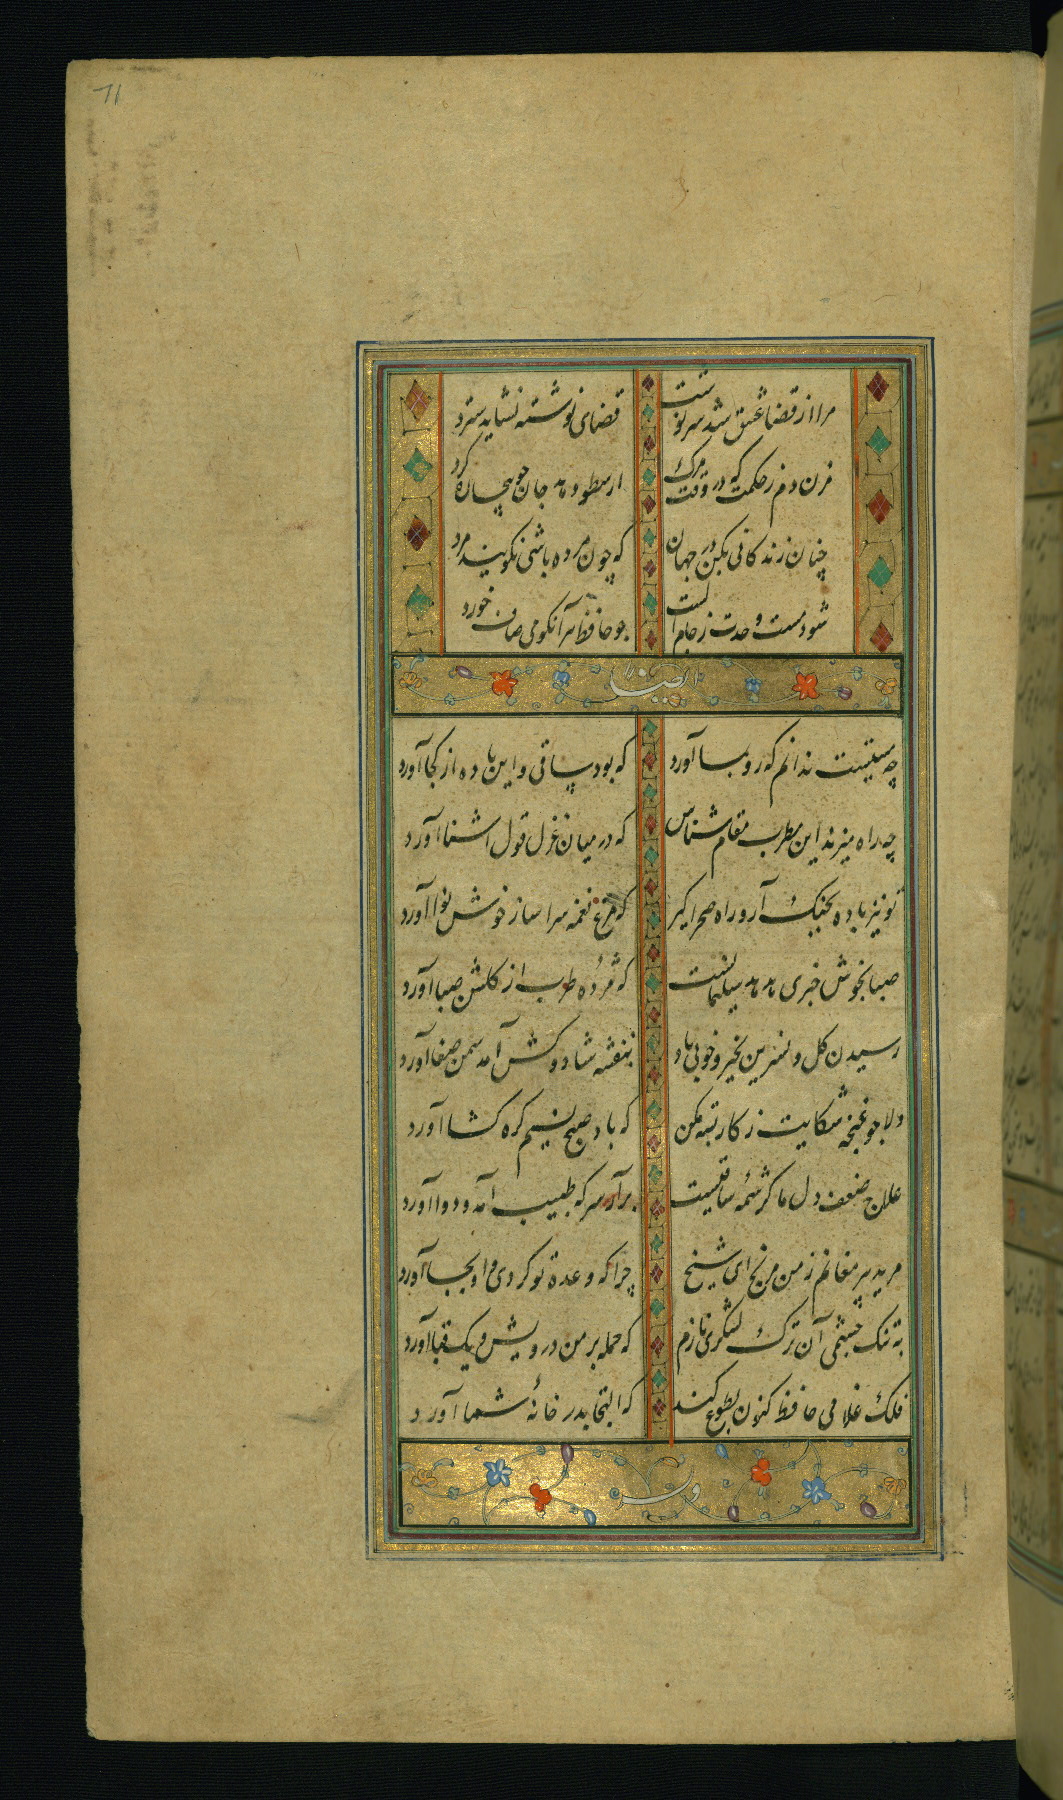 11
مرا از قضا عشق شد سرنوشت قضای نوشته نشاید سترد
مزن دم ز حکمت که در وقت مرگ ارسطو دهد جان چو بیچاره کرد
چنان زندکانی بکن در جهان که چون مرده باشی نکویند مرد
شود مست وحدت ز جام الست چو حافظ هر آنکو می صاف خورد
ایضا له
چه مستیست ندانم که رو بما آورد که بود ساقی و این باده از کجا آورد
چه راه میزند این مطرب مقام شناس که در میان غزل قول اشنا آورد
تو نیز باده بچنک آر و راه صحرا کیر که مرغ نغمه سرا ساز خوش نوا آورد
صبا بخوش خبری هدهد سلیمانست که مژده طرب از کلشن صبا آورد
رسیدن کل و نسرین بخیر و خوبی باد بنفشه شاد و کش آمد سمن صفا آورد
دلا چو غنچه شکایت ز کار بسته مکن که باد صبح نسیم کره کشا آورد
علاج ضعف دل ما کرشمهٔ ساقیست برآر سر که طبیب آمد و دوا آورد
مرید پیر مغانم ز من مرنج ای شیخ چرا که وعده تو کردی و او بجا آورد
به تنک چشمی آن ترک لشکری نازم که حمله بر من درویش یک قبا آورد
فلک غلامی حافظ کنون بطوع کند که التجا بدر خانهٔ شما آورد